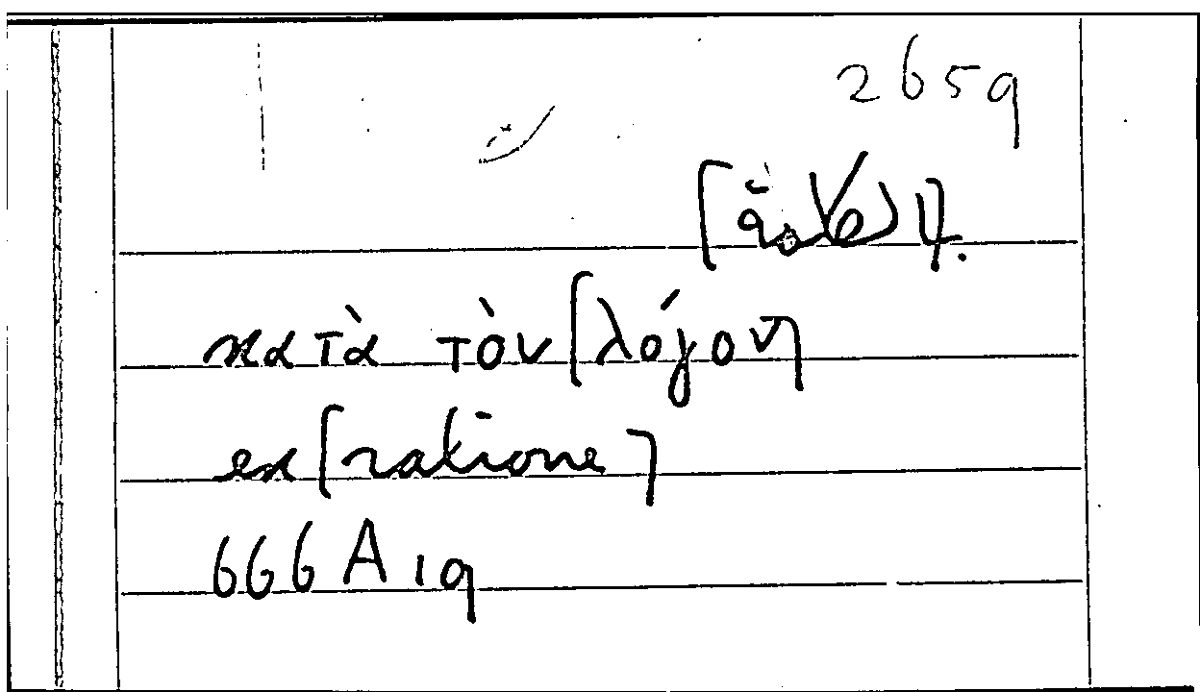 2659
κατὰ τὸν [λόγον]
ex [ratione]
666 A 19